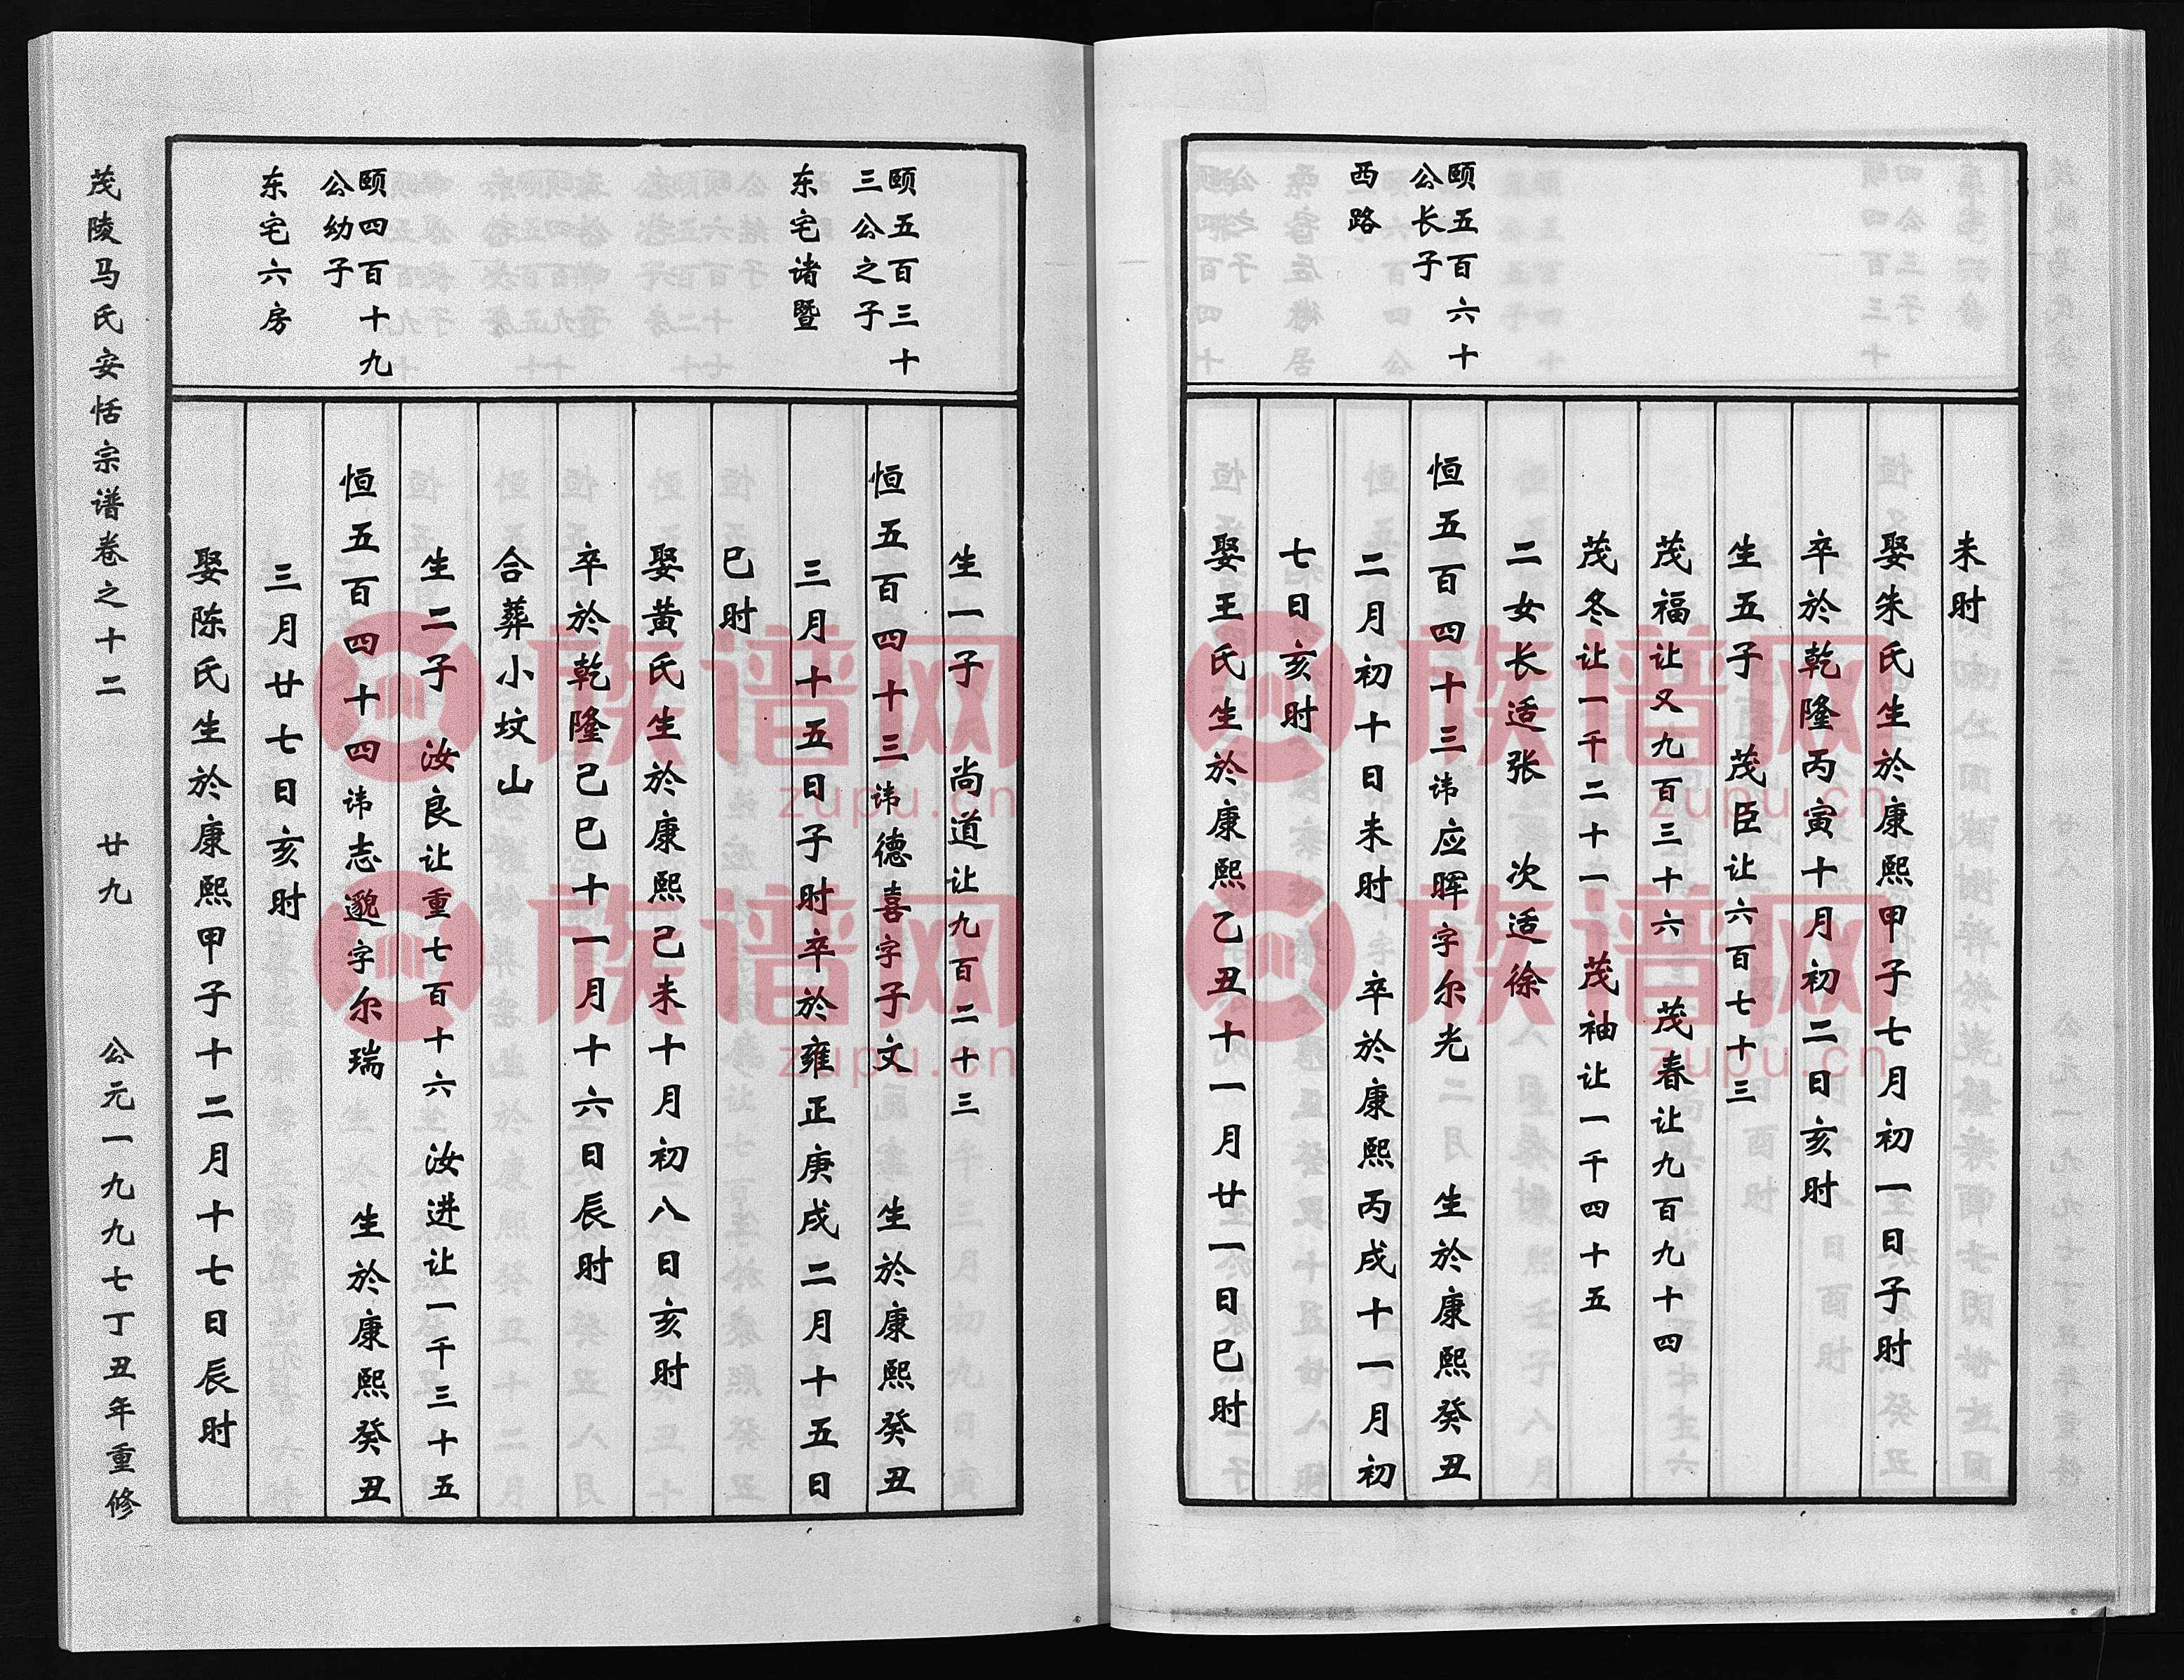 颐五百六十
公长子
西路
未时
娶朱氏生於康熙甲子七月初一日子时
卒於乾隆丙寅十月初二日亥时
生五子 茂臣让六百七十三
茂福让又九百三十六 茂春让九百九十四
茂冬让一千二十一 茂袖让一千四十五
二女长适张 次适徐
恒五百四十三讳应晖字尔光 生於康熙癸丑
二月初十日未时 卒於康熙丙戌十一月初
七日亥时
娶王氏生於康熙乙丑十一月廿一日巳时
颐五百三十
三公之子
东宅诸暨
颐四百十九
公幼子
东宅六房
生一子 尚道让九百二十三
恒五百四十三讳德喜字子文 生於康熙癸丑
三月十五日子时卒於雍正庚戌二月十五日
巳时
娶黄氏生於康熙己未十月初八日亥时
卒於乾隆己巳十一月十六日辰时
合葬小坟山
生二子 汝良让重七百十六 汝进让一千三十五
恒五百四十四讳志邈字尔瑞 生於康熙癸丑
三月廿七日亥时
娶陈氏生於康熙甲子十二月十七日辰时
茂陵马氏安恬宗谱卷之十二 廿九 公元一九九七丁丑年重修
族谱网
zupu.cn
族谱网
zupu.cn
族谱网
zupu.cn
族谱网
zupu.cn